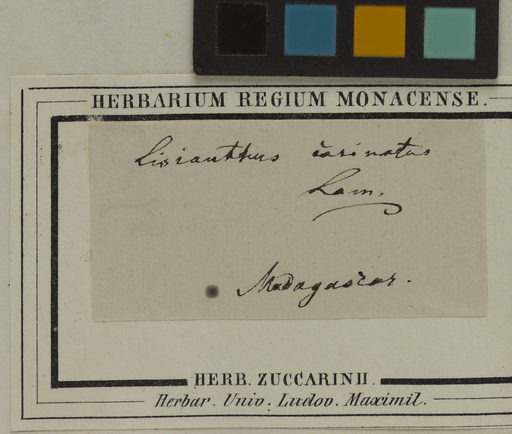 HERBARIUM REGIUM MONACENSE.
Lisianthus carinatus
Lam.
Madagascar.
HERB. ZUCCARINII.
Herbar. Univ. Ludov. Maximil.